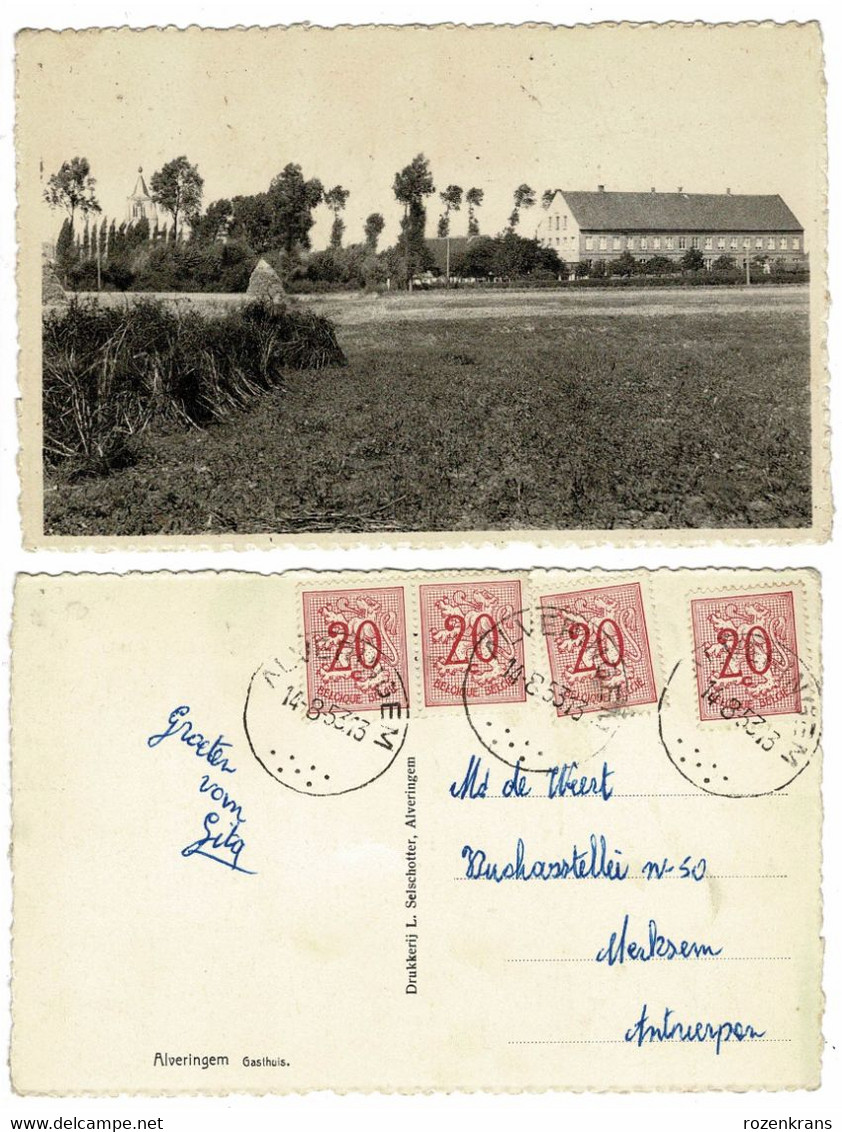 20
BELGIQUE BELGIE
20
BELGIQUE BELGIE
20
BELGIQUE BELGIE
20
BELGIQUE BELGIE
ALVERINGEM
14-8-53.13
ALVERINGEM
14-8-53.13
ALVERINGEM
14-8-53.13
Groeten
vom
Gita
Drukkerij L. Selschotter, Alveringem
Md de Weert
nr-50
Merksem
Antwerpen
Alveringem Gasthuis.
delcampe.net
rozenkrans